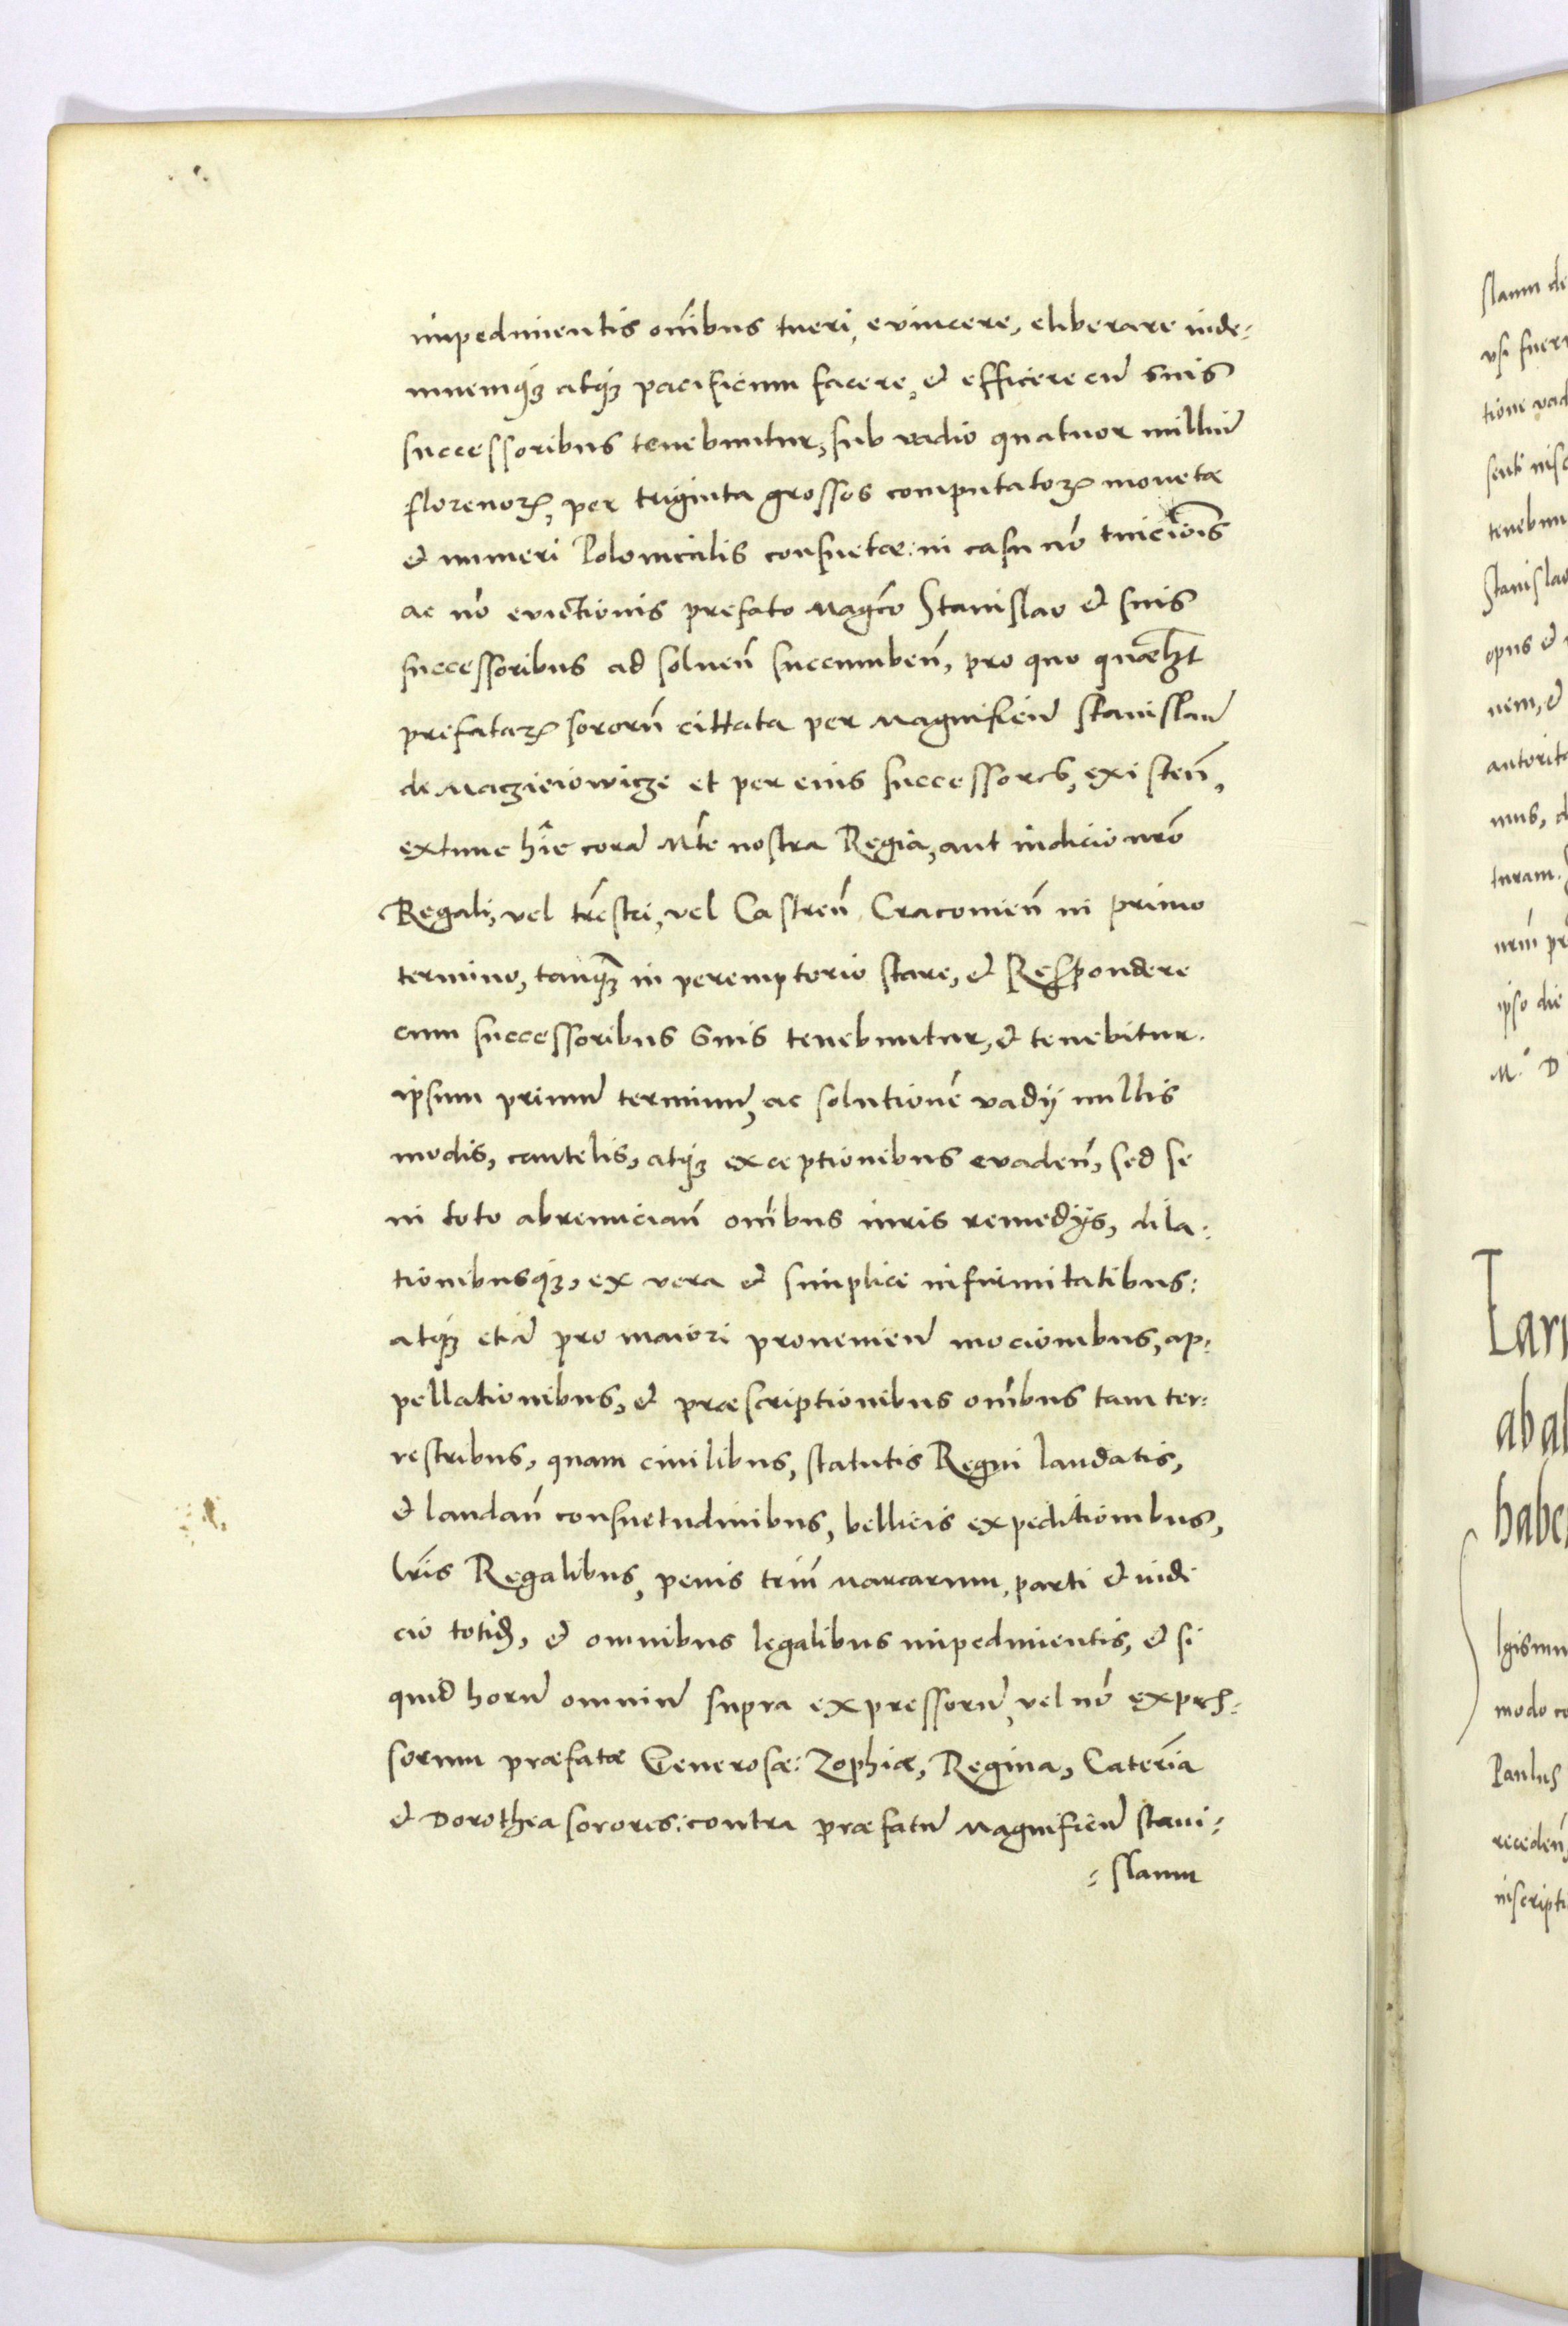 impedimentis om̃ibus tueri, evincere, eliberare inde-
mnemq₃ atq₃ pacificum facere, et efficere cũ suis
successoribus tenebuntur, sub vadio quatuor milliũ
florenoꝝ, per triginta grossos computatoꝝ monetæ
et numeri Polonicalis consuetæ: in casu nõ tuiciõis
ac nõ evictionis prefato Magco Stanislao et suis
successoribus ad soluen̄ succumben̄, pro quo quælꝫt
prefataꝝ sororũ cittata per Magnificũ Stanislaũ
de Maczieiowicze et per eius successores, existen̄,
extunc hĩc corã Mte nostra Regia, aut iudicio nr̃o
Regali, vel tr̃estri, vel Castren̄ Cracouien̄ in primo
termino, tanq₃ in peremptorio stare, et Respondere
cum successoribus suis tenebuntur, et tenebitur.
ipsum primũ terminũ, ac solutionẽ vadij nullis
modis, cautelis, atq₃ exceptionibus evaden̄, sed se
in toto abrenuncian̄ om̃ibus iuris remedijs, dila-
tionibusq₃, ex vera et simplice infirmitatibus:
atq₃ etiã pro maiori prouenien̄ mocionibus, ap-
pellationibus, et præscriptionibus om̃ibus tam ter-
restribus, quam ciuilibus, statutis Regni laudatis,
et laudan̄ consuetudinibus, bellicis expeditionibus,
lr̃is Regalibus, penis triũ marcarum, parti et iudi
cio totiđ, et omnibus legalibus impedimentis, et si
quid horũ omniũ supra expressorũ, vel nõ expres-
sorum præfatæ Generosæ: Zophiæ, Regina, Caterĩa
et Dorothea sorores: contra præfatũ Magnificũ Stani-
-slaum
slaum de
usi fuer
tione vad
tenebun
Stanislao
opus et
nem, et
autorita
mus, d
turam.
ipso die
M. D
Tarn
abal
habe
igismu
modo co
Paulus
receden̄
inscripti